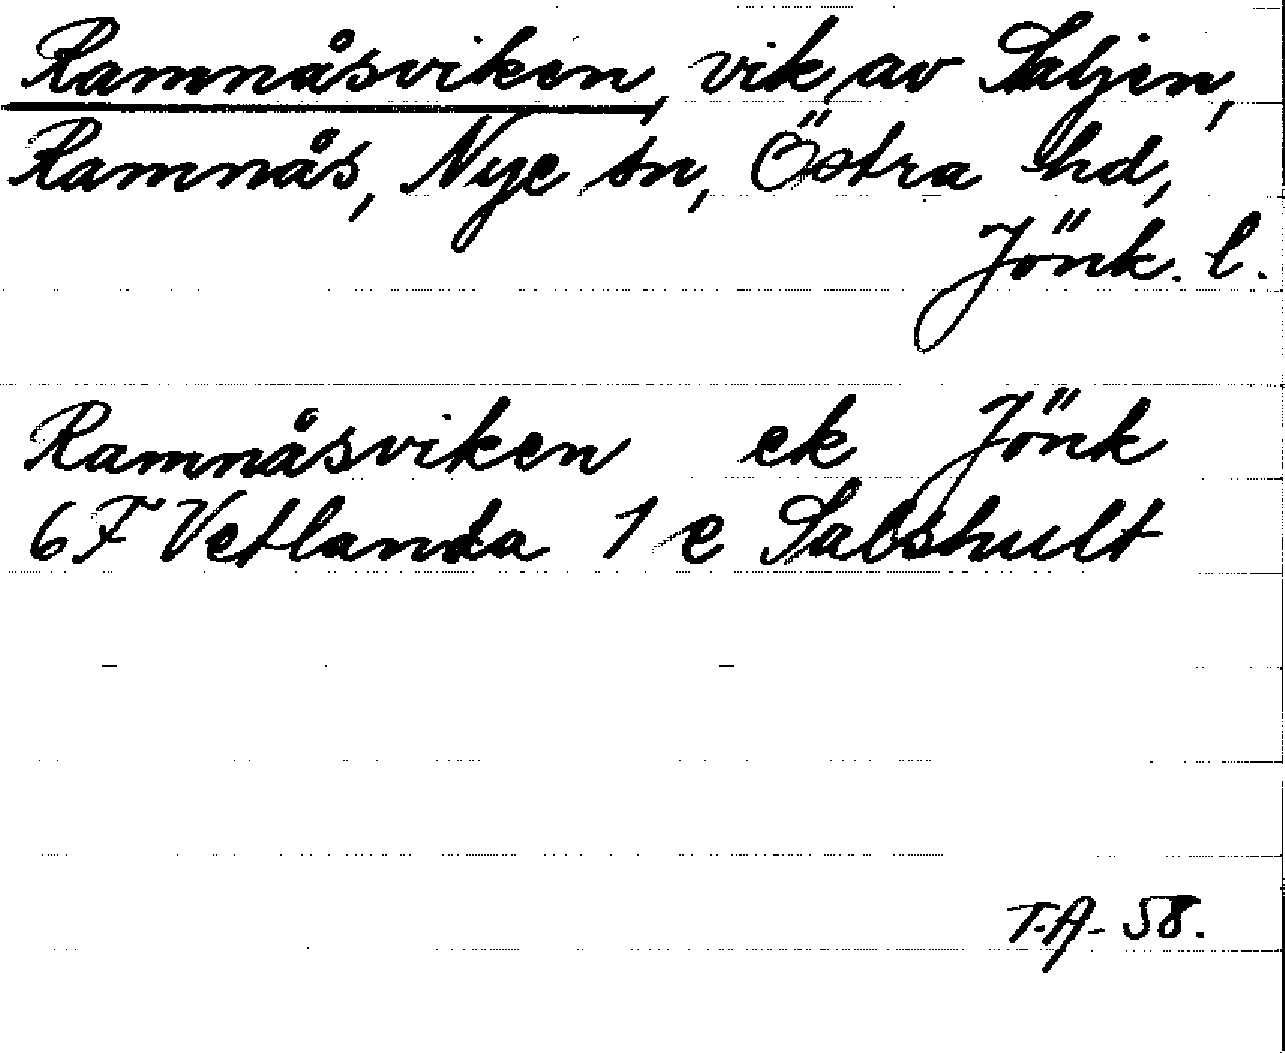 Ramnåsviken, vik av Saljen,
Ramnås, Nye sn, Östra hd,
Jönk. l.
Ramnåsviken ek Jönk
6F Vetlanda 1 e Sabshult
T.A- 58.